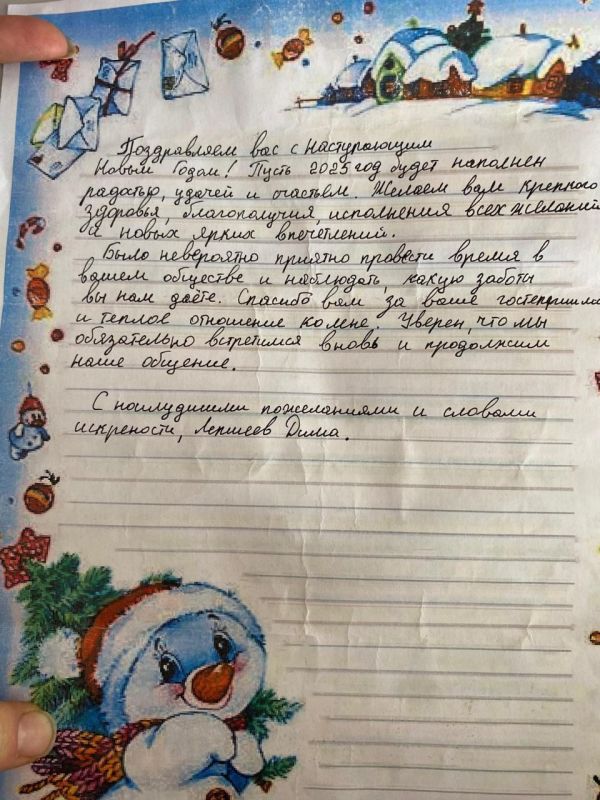 Поздравляем вас с наступающим
Новым Годом! Пусть 2025 год будет наполнен
радостью, удачей и счастьем. Желаем вам крепкого
здоровья, благополучия, исполнения всех желаний
и новых ярких впечатлений.
Было невероятно приятно провести время в
вашем обществе и наблюдать, какую заботы
вы нам даёте. Спасибо вам за ваше гостеприим
и теплое отношение ко мне. Уверен, что мы
обязательно встретимся вновь и продолжим
наше общение.
С наилудишми пожеланиями и словами
искрености, Дима.